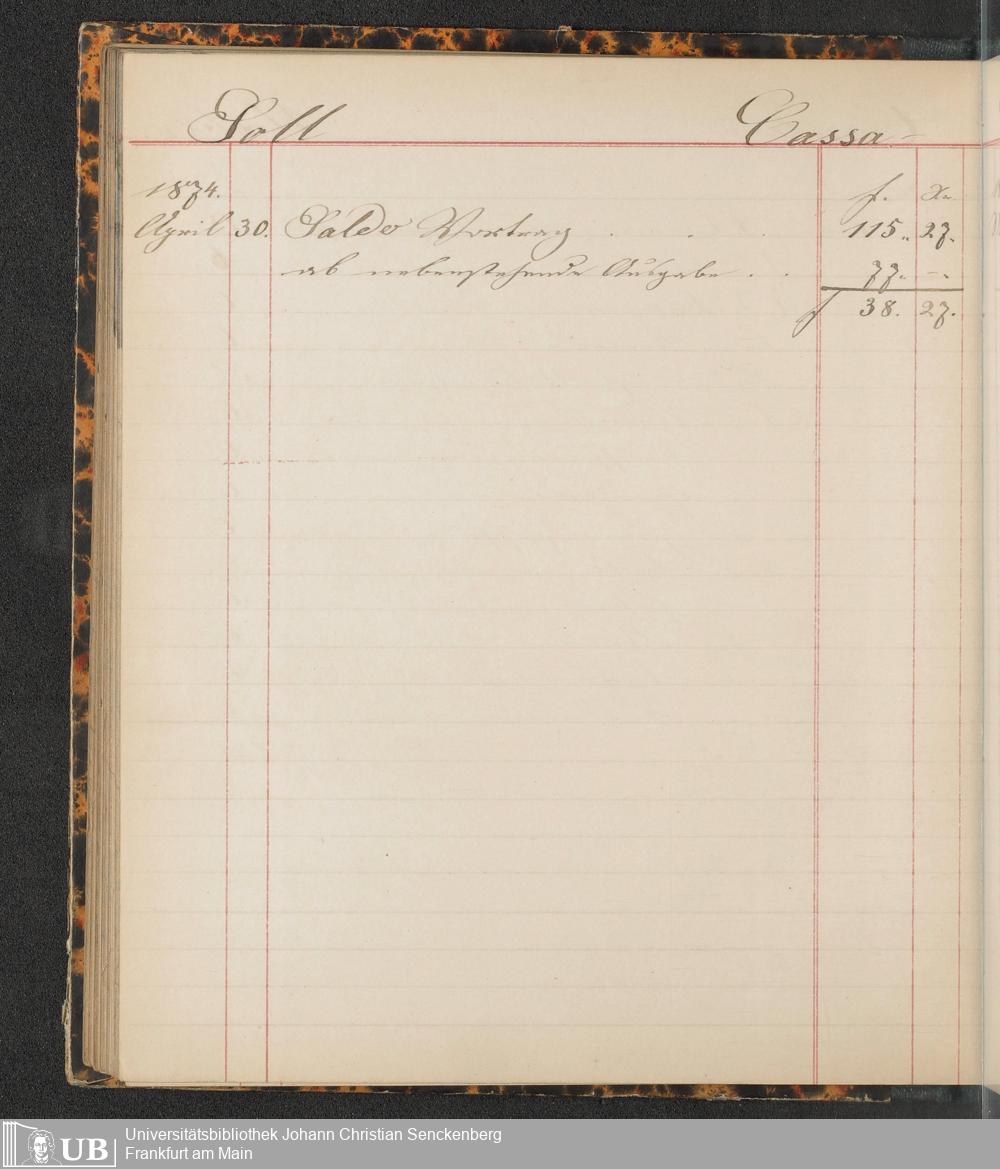 Soll Cassa-
1874. f. x.
April 30. Saldo Vortrag . . . 115.. 27.
ab nebenstehende Ausgabe . . 77. -.
f 38. 27.
UB Universitätsbibliothek Johann Christian Senckenberg
Frankfurt am Main